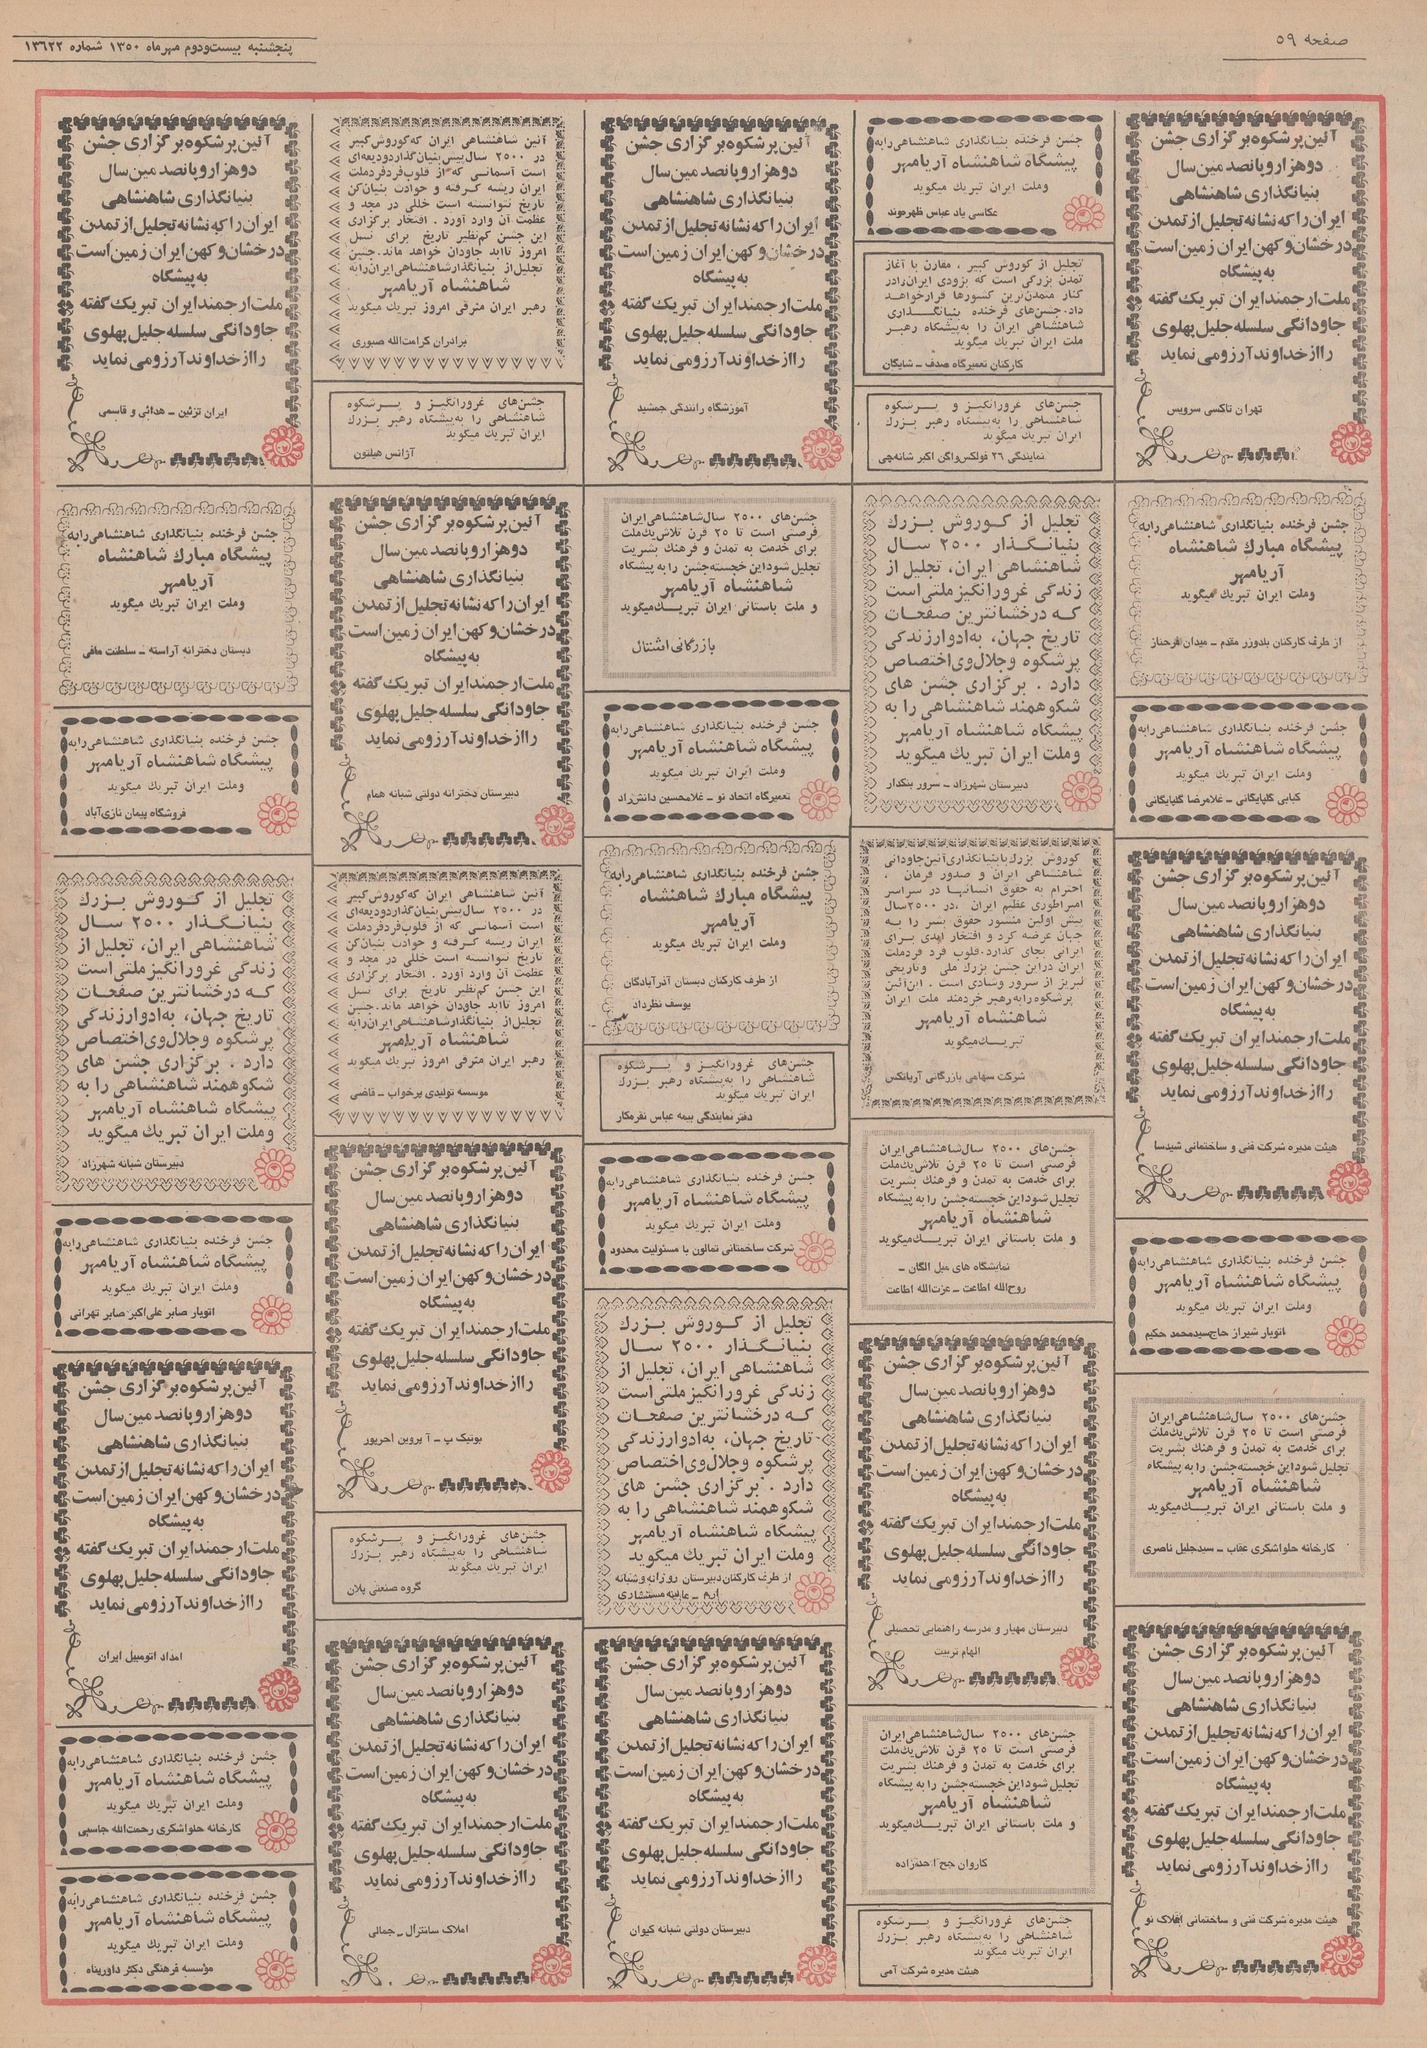 صفحه ۵۹
پنجشنبه بیست‌ودوم مهرماه ۱۳۵۰ شماره ۱۳۶۲۲
آئین پرشکوه برگزاری جشن
دوهزاروپانصدمین سال
بنیانگذاری شاهنشاهی
ایران را که نشانه تجلیل از تمدن
درخشان و کهن ایران زمین است
به پیشگاه
ملت ارجمند ایران تبریک گفته
جاودانگی سلسله جلیل پهلوی
را از خداوند آرزو می نماید
تهران تاکسی سرویس
جشن فرخنده بنیانگذاری شاهنشاهی رابه
پیشگاه مبارك شاهنشاه
آریامهر
وملت ایران تبریك میگوید
از طرف کارکنان بلدوزر مقدم ـ میدان فرحناز
جشن فرخنده بنیانگذاری شاهنشاهی رابه
پیشگاه شاهنشاه آریامهر
وملت ایران تبریك میگوید
کبابی گلپایگانی ـ غلامرضا گلپایگانی
آئین پرشکوه برگزاری جشن
دوهزاروپانصدمین سال
بنیانگذاری شاهنشاهی
ایران را که نشانه تجلیل از تمدن
درخشان و کهن ایران زمین است
به پیشگاه
ملت ارجمند ایران تبریک گفته
جاودانگی سلسله جلیل پهلوی
را از خداوند آرزو می نماید
هیئت مدیره شرکت فنی و ساختمانی شیدسا
جشن فرخنده بنیانگذاری شاهنشاهی رابه
پیشگاه شاهنشاه آریامهر
وملت ایران تبریك میگوید
اتوبار شیراز حاج سیدمحمد حکیم
جشن‌های ۲۵۰۰ سال شاهنشاهی ایران
فرصتی است تا ۲۵ قرن تلاش یك ملت
برای خدمت به تمدن و فرهنك بشریت
تجلیل شود این خجسته جشن را به پیشگاه
شاهنشاه آریامهر
و ملت باستانی ایران تبریك میگوید
کارخانه حلواشکری عقاب ـ سیدجلیل ناصری
آئین پرشکوه برگزاری جشن
دوهزاروپانصدمین سال
بنیانگذاری شاهنشاهی
ایران را که نشانه تجلیل از تمدن
درخشان و کهن ایران زمین است
به پیشگاه
ملت ارجمند ایران تبریک گفته
جاودانگی سلسله جلیل پهلوی
را از خداوند آرزو می نماید
هیئت مدیره شرکت فنی و ساختمانی افلاک نو
جشن فرخنده بنیانگذاری شاهنشاهی رابه
پیشگاه شاهنشاه آریامهر
وملت ایران تبریك میگوید
عکاسی یاد عباس ظهرموند
تجلیل از کوروش کبیر ، مقارن با آغاز
تمدن بزرگی است که بزودی ایران رادر
کنار متمدن‌ترین کشورها قرارخواهد
داد. جشن‌های فرخنده بنیانگذاری
شاهنشاهی ایران را به پیشگاه رهبر
ملت ایران تبریك میگوید
کارکنان تعمیرگاه صدف ـ شایگان
جشن‌های غرورانگیز و پرشکوه
شاهنشاهی را به پیشگاه رهبر بزرك
ایران تبریك میگوید
نمایندگی ۲۶ فولکس واگن اکبر شانه‌چی
تجلیل از کوروش بزرك
بنیانگذار ۲۵۰۰ سال
شاهنشاهی ایران، تجلیل از
زندگی غرورانگیز ملتی است
که درخشانترین صفحات
تاریخ جهان، به ادوار زندگی
پرشکوه وجلال وی اختصاص
دارد . برگزاری جشن های
شکوهمند شاهنشاهی را به
پیشگاه شاهنشاه آریامهر
وملت ایران تبریك میگوید
دبیرستان شهرزاد ـ سرور بنکدار
کوروش بزرك با بنیانگذاری آئین جاودانی
شاهنشاهی ایران و صدور فرمان ،
احترام به حقوق انسانها در سراسر
امپراطوری عظیم ایران ،در ۲۵۰۰ سال
پیش اولین منشور حقوق بشر را به
جهان عرضه کرد و افتخار ابدی برای
ایرانی بجای گذارد. قلوب فرد فردملت
ایران دراین جشن بزرك ملی وتاریخی
لبریز از سرور وشادی است . این آئین
پرشکوه رابه رهبر خردمند ملت ایران
شاهنشاه آریامهر
تبریك میگوید
شرکت سهامی بازرگانی آریانکس
جشن‌های ۲۵۰۰ سال شاهنشاهی ایران
فرصتی است تا ۲۵ قرن تلاش یك ملت
برای خدمت به تمدن و فرهنك بشریت
تجلیل شود این خجسته جشن را به پیشگاه
شاهنشاه آریامهر
و ملت باستانی ایران تبریك میگوید
نمایشگاه های مبل الگان ـ
روح‌الله اطاعت ـ عزت‌الله اطاعت
آئین پرشکوه برگزاری جشن
دوهزاروپانصدمین سال
بنیانگذاری شاهنشاهی
ایران را که نشانه تجلیل از تمدن
درخشان و کهن ایران زمین است
به پیشگاه
ملت ارجمند ایران تبریک گفته
جاودانگی سلسله جلیل پهلوی
را از خداوند آرزو می نماید
دبیرستان مهیار و مدرسه راهنمایی تحصیلی
الهام تربیت
جشن‌های ۲۵۰۰ سال شاهنشاهی ایران
فرصتی است تا ۲۵ قرن تلاش یك ملت
برای خدمت به تمدن و فرهنك بشریت
تجلیل شود این خجسته جشن را به پیشگاه
شاهنشاه آریامهر
و ملت باستانی ایران تبریك میگوید
کاروان حج
جشن‌های غرورانگیز و پرشکوه
شاهنشاهی را به پیشگاه رهبر بزرك
ایران تبریك میگوید
هیئت مدیره شرکت آمی
آئین پرشکوه برگزاری جشن
دوهزاروپانصدمین سال
بنیانگذاری شاهنشاهی
ایران را که نشانه تجلیل از تمدن
درخشان و کهن ایران زمین است
به پیشگاه
ملت ارجمند ایران تبریک گفته
جاودانگی سلسله جلیل پهلوی
را از خداوند آرزو می نماید
آموزشگاه رانندگی جمشید
جشن‌های ۲۵۰۰ سال شاهنشاهی ایران
فرصتی است تا ۲۵ قرن تلاش یك ملت
برای خدمت به تمدن و فرهنك بشریت
تجلیل شود این خجسته جشن را به پیشگاه
شاهنشاه آریامهر
و ملت باستانی ایران تبریك میگوید
بازرگانی اشتال
جشن فرخنده بنیانگذاری شاهنشاهی رابه
پیشگاه شاهنشاه آریامهر
وملت ایران تبریك میگوید
تعمیرگاه اتحاد نو ـ غلامحسین دانش‌راد
جشن فرخنده بنیانگذاری شاهنشاهی رابه
پیشگاه مبارك شاهنشاه
آریامهر
وملت ایران تبریك میگوید
از طرف کارکنان دبستان آذرآبادگان
یوسف نظرداد
جشن‌های غرورانگیز و پرشکوه
شاهنشاهی را به پیشگاه رهبر بزرك
ایران تبریك میگوید
دفتر نمایندگی بیمه عباس نفرمکار
جشن فرخنده بنیانگذاری شاهنشاهی رابه
پیشگاه شاهنشاه آریامهر
وملت ایران تبریك میگوید
شرکت ساختمانی تمالون با مسئولیت محدود
تجلیل از کوروش بزرك
بنیانگذار ۲۵۰۰ سال
شاهنشاهی ایران، تجلیل از
زندگی غرورانگیز ملتی است
که درخشانترین صفحات
تاریخ جهان، به ادوار زندگی
پرشکوه وجلال وی اختصاص
دارد . برگزاری جشن های
شکوهمند شاهنشاهی را به
پیشگاه شاهنشاه آریامهر
وملت ایران تبریك میگوید
از طرف کارکنان دبیرستان روزانه و شبانه
ارم ـ مستشاری
آئین پرشکوه برگزاری جشن
دوهزاروپانصدمین سال
بنیانگذاری شاهنشاهی
ایران را که نشانه تجلیل از تمدن
درخشان و کهن ایران زمین است
به پیشگاه
ملت ارجمند ایران تبریک گفته
جاودانگی سلسله جلیل پهلوی
را از خداوند آرزو می نماید
دبیرستان دولتی شبانه کیوان
آئین شاهنشاهی ایران که کوروش کبیر
در ۲۵۰۰ سال پیش بنیان گذارد ودیعه‌ای
است آسمانی که از قلوب فردفردملت
ایران ریشه گرفته و حوادث بنیان کن
تاریخ نتوانسته است خللی در مجد و
عظمت آن وارد آورد . افتخار برگزاری
این جشن کم‌نظیر تاریخ برای نسل
امروز تاابد جاودان خواهد ماند. جشن
تجلیل‌از بنیانگذار شاهنشاهی ایران رابه
شاهنشاه آریامهر
رهبر ایران مترقی امروز تبریك میگوید
برادران کرامت‌الله صبوری
جشن‌های غرورانگیز و پرشکوه
شاهنشاهی را به پیشگاه رهبر بزرك
ایران تبریك میگوید
آژانس هیلتون
آئین پرشکوه برگزاری جشن
دوهزاروپانصدمین سال
بنیانگذاری شاهنشاهی
ایران را که نشانه تجلیل از تمدن
درخشان و کهن ایران زمین است
به پیشگاه
ملت ارجمند ایران تبریک گفته
جاودانگی سلسله جلیل پهلوی
را از خداوند آرزو می نماید
دبیرستان دخترانه دولتی شبانه همام
آئین شاهنشاهی ایران که کوروش کبیر
در ۲۵۰۰ سال پیش بنیان گذارد ودیعه‌ای
است آسمانی که از قلوب فردفردملت
ایران ریشه گرفته و حوادث بنیان کن
تاریخ نتوانسته است خللی در مجد و
عظمت آن وارد آورد . افتخار برگزاری
این جشن کم‌نظیر تاریخ برای نسل
امروز تاابد جاودان خواهد ماند. جشن
تجلیل‌از بنیانگذار شاهنشاهی ایران رابه
شاهنشاه آریامهر
رهبر ایران مترقی امروز تبریك میگوید
موسسه تولیدی پرخواب ـ قاضی
آئین پرشکوه برگزاری جشن
دوهزاروپانصدمین سال
بنیانگذاری شاهنشاهی
ایران را که نشانه تجلیل از تمدن
درخشان و کهن ایران زمین است
به پیشگاه
ملت ارجمند ایران تبریک گفته
جاودانگی سلسله جلیل پهلوی
را از خداوند آرزو می نماید
بوتیک پ ـ آ پروین آجرپور
جشن‌های غرورانگیز و پرشکوه
شاهنشاهی را به پیشگاه رهبر بزرك
ایران تبریك میگوید
گروه صنعتی پلان
آئین پرشکوه برگزاری جشن
دوهزاروپانصدمین سال
بنیانگذاری شاهنشاهی
ایران را که نشانه تجلیل از تمدن
درخشان و کهن ایران زمین است
به پیشگاه
ملت ارجمند ایران تبریک گفته
جاودانگی سلسله جلیل پهلوی
را از خداوند آرزو می نماید
املاک سانترال ـ جمالی
آئین پرشکوه برگزاری جشن
دوهزاروپانصدمین سال
بنیانگذاری شاهنشاهی
ایران را که نشانه تجلیل از تمدن
درخشان و کهن ایران زمین است
به پیشگاه
ملت ارجمند ایران تبریک گفته
جاودانگی سلسله جلیل پهلوی
را از خداوند آرزو می نماید
ایران تزئین ـ هدائی و قاسمی
جشن فرخنده بنیانگذاری شاهنشاهی رابه
پیشگاه مبارك شاهنشاه
آریامهر
وملت ایران تبریك میگوید
دبستان دخترانه آراسته ـ سلطنت مافی
جشن فرخنده بنیانگذاری شاهنشاهی رابه
پیشگاه شاهنشاه آریامهر
وملت ایران تبریك میگوید
فروشگاه پیمان نازی‌آباد
تجلیل از کوروش بزرك
بنیانگذار ۲۵۰۰ سال
شاهنشاهی ایران، تجلیل از
زندگی غرورانگیز ملتی است
که درخشانترین صفحات
تاریخ جهان، به ادوار زندگی
پرشکوه وجلال وی اختصاص
دارد . برگزاری جشن های
شکوهمند شاهنشاهی را به
پیشگاه شاهنشاه آریامهر
وملت ایران تبریك میگوید
دبیرستان شبانه شهرزاد
جشن فرخنده بنیانگذاری شاهنشاهی رابه
پیشگاه شاهنشاه آریامهر
وملت ایران تبریك میگوید
اتوبار صابر علی‌اکبر صابر تهرانی
آئین پرشکوه برگزاری جشن
دوهزاروپانصدمین سال
بنیانگذاری شاهنشاهی
ایران را که نشانه تجلیل از تمدن
درخشان و کهن ایران زمین است
به پیشگاه
ملت ارجمند ایران تبریک گفته
جاودانگی سلسله جلیل پهلوی
را از خداوند آرزو می نماید
امداد اتومبیل ایران
جشن فرخنده بنیانگذاری شاهنشاهی رابه
پیشگاه شاهنشاه آریامهر
وملت ایران تبریك میگوید
کارخانه حلواشکری رحمت‌الله جاسبی
جشن فرخنده بنیانگذاری شاهنشاهی رابه
پیشگاه شاهنشاه آریامهر
وملت ایران تبریك میگوید
مؤسسه فرهنگی دکتر داورپناه